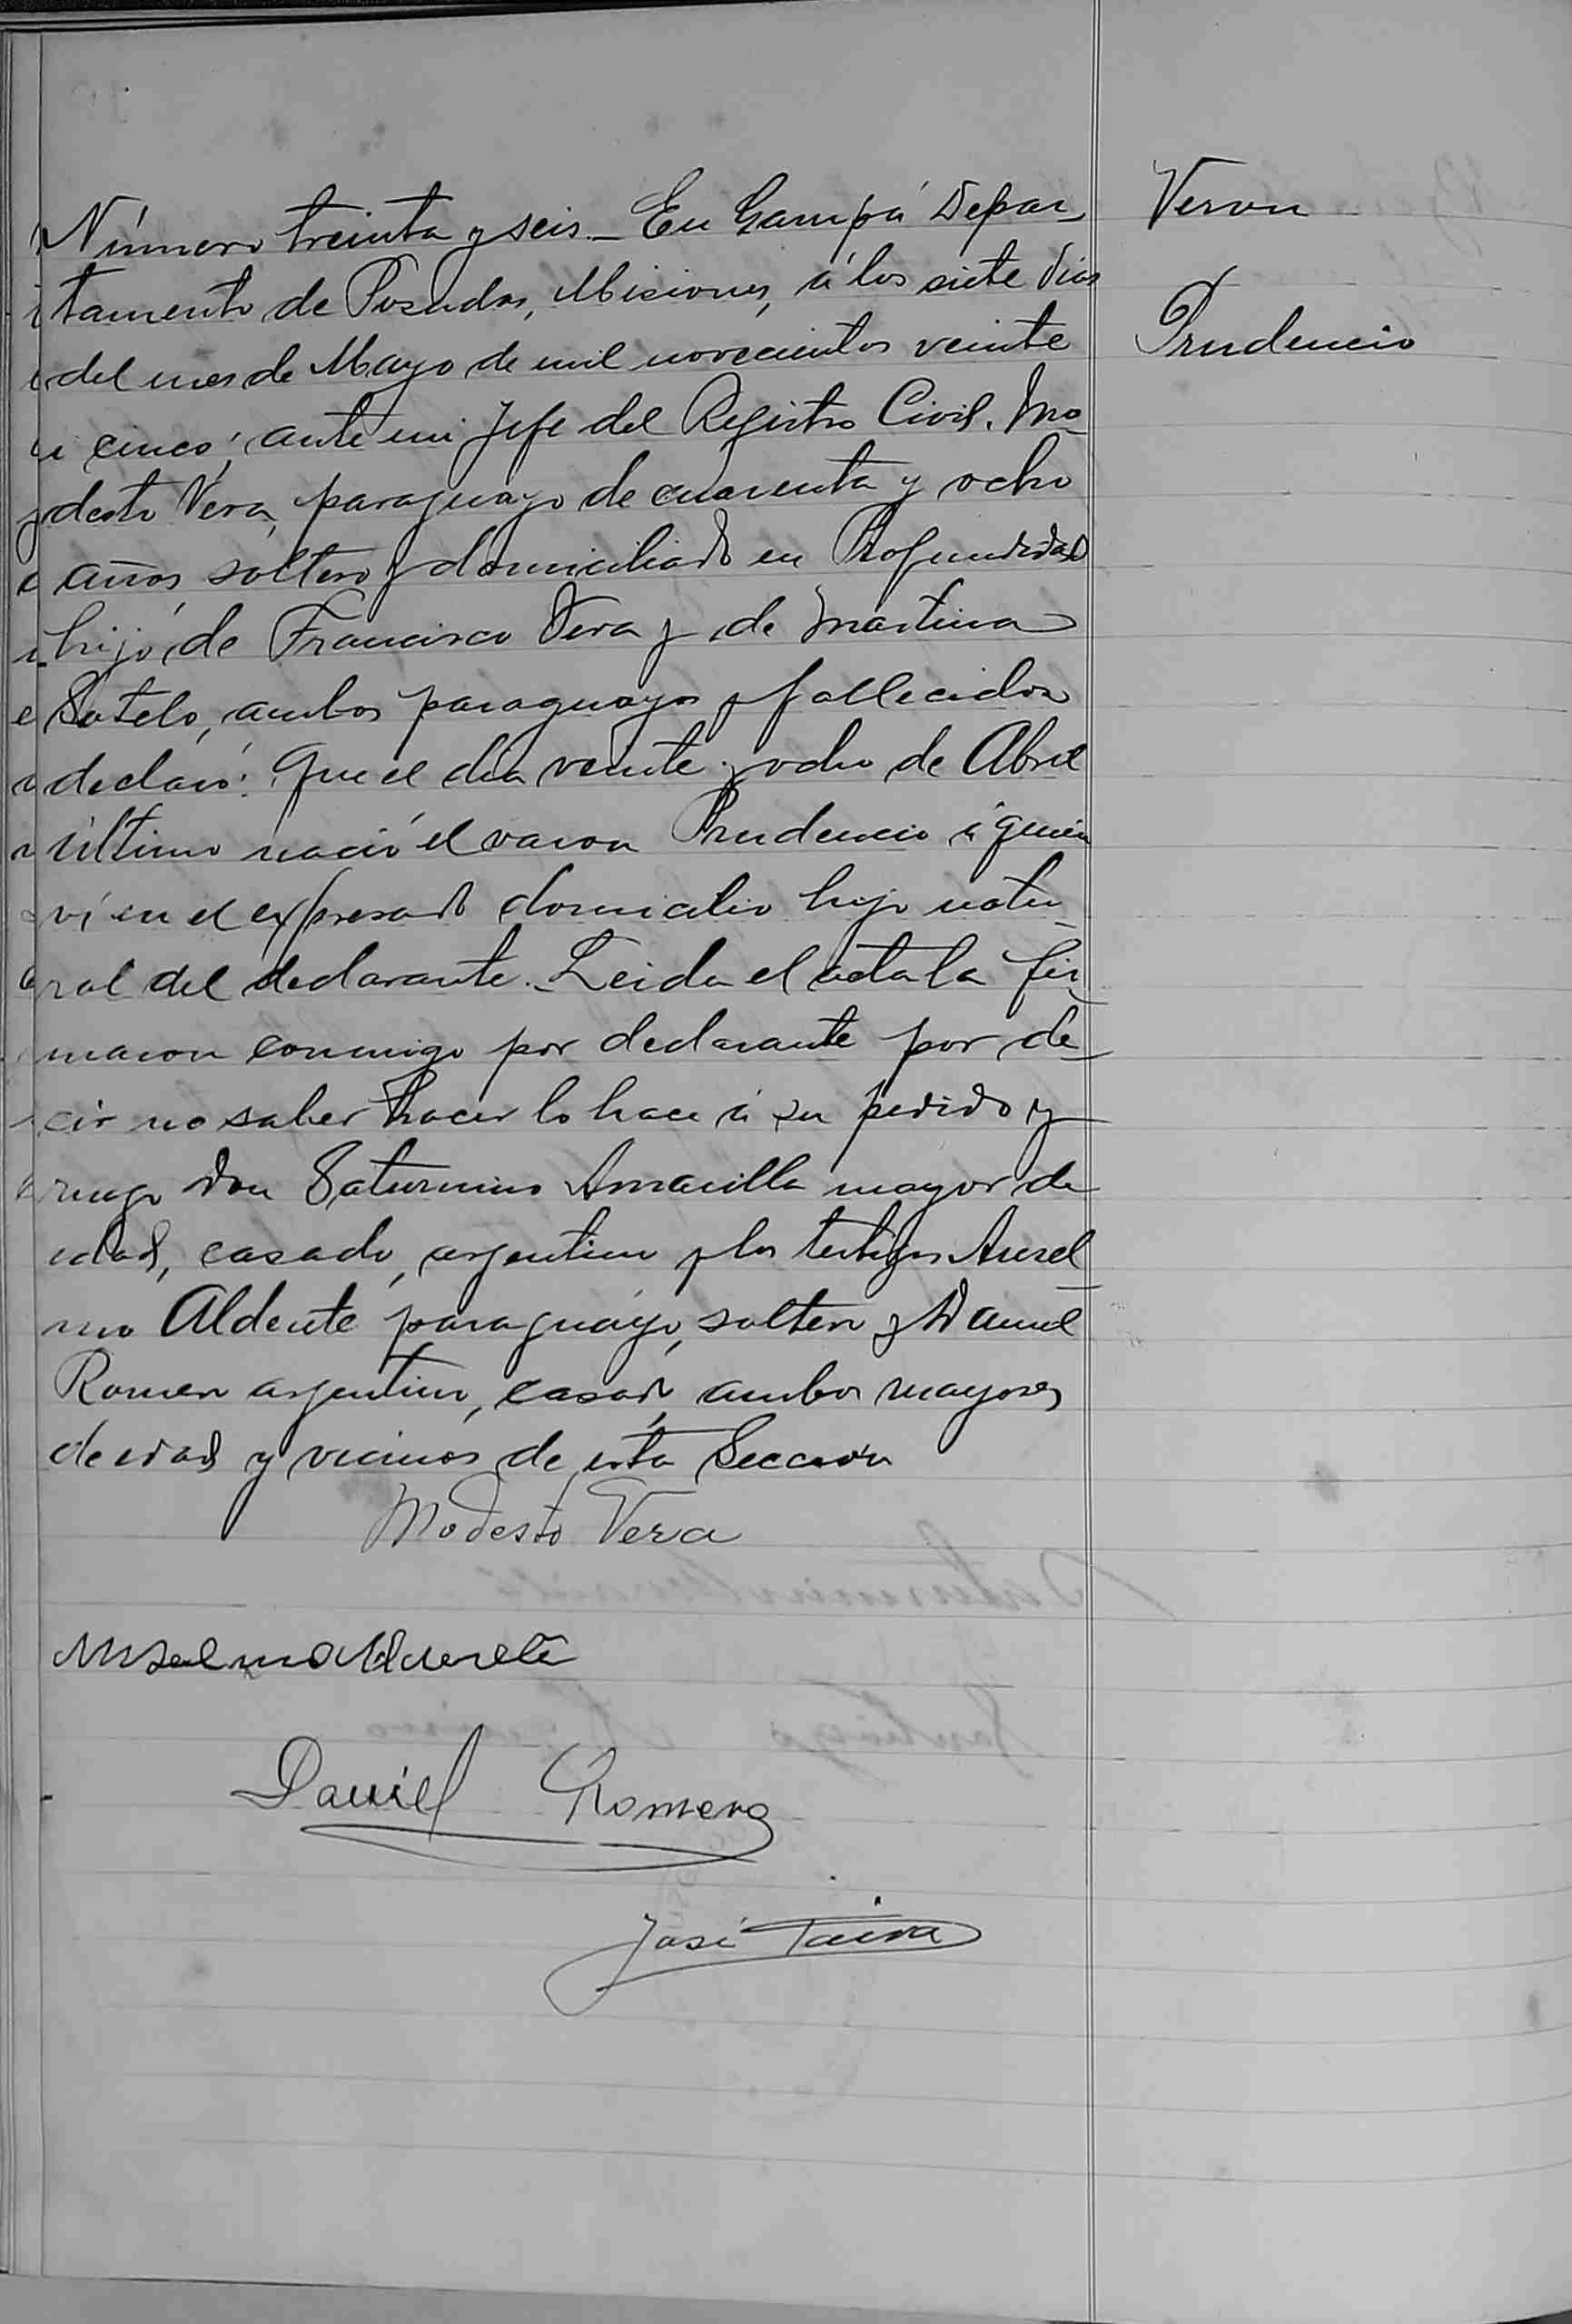 Número treinta y seis._ En Garupá Depar_
tamento de Posadas, Misiones, á los siete dias
del mes de Mayo de mil novecientos veinte
i cinco; ante mi Jefe del Registro Civil. Mo_
desto Vera, paraguayo de cuarenta y ocho
años, soltero y domiciliado en Profundidad
hijo de Francisco Vera y de Martina
Sotelo, ambos paraguayos y fallecidos
declaró: Que el dia veinte y ocho de Abril
último nació el varon Prudencio á quien
ví en el expresado domicilio hijo natu_
ral del declarante._ Leida el acta la fir_
maron conmigo por declarante por de_
cir no saber hacer lo hace á su pedido y
ruego don Saturnino Amarilla mayor de
edad, casado, argentino y los testigos Ansel_
mo Alderete paraguayo, soltero y Daniel
Romero argentino, casado, ambos mayores
de edad y vecinos de esta Sección
Modesto Vera
Anselmo Alderete
Daniel Romero
José Paiva
Veron
Prudencio